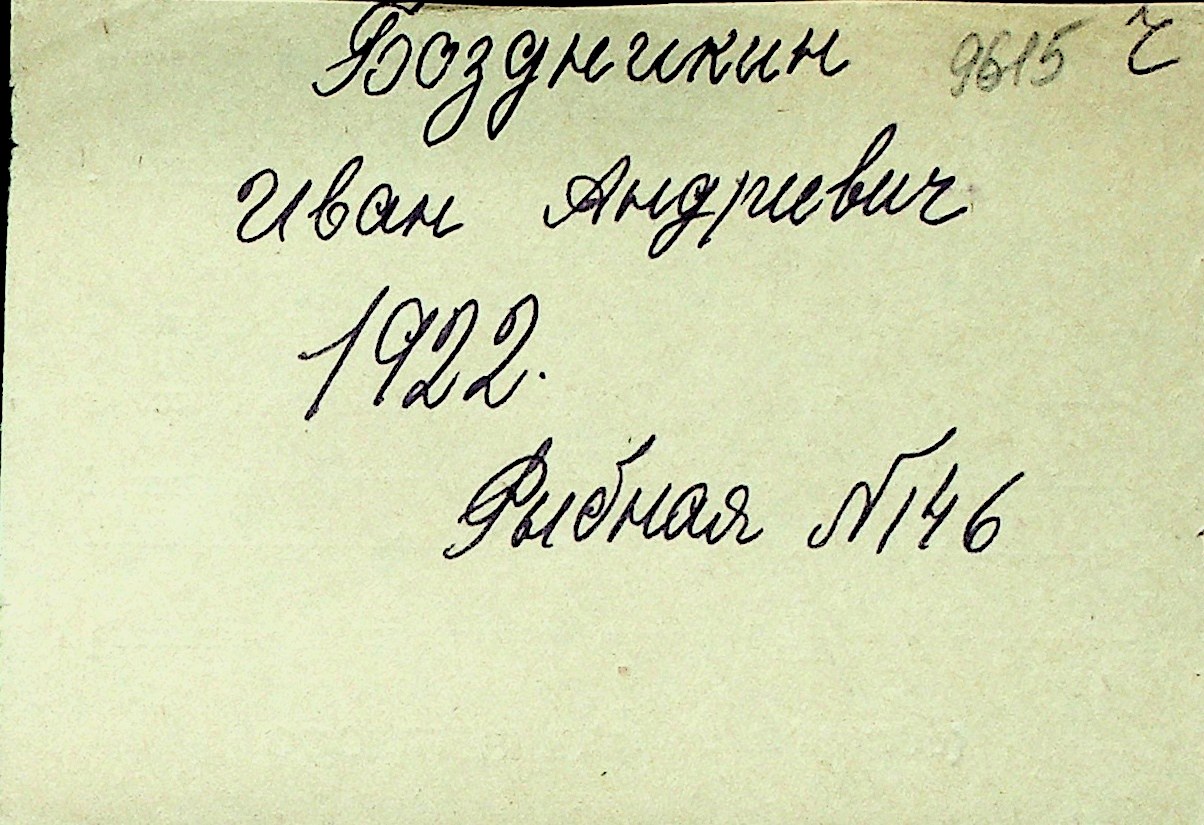 Боздникин 9615 ч
Иван Андриевич
1922.
Рыбная №146